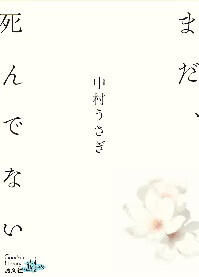 まだ、
死んでない
中村うさぎ